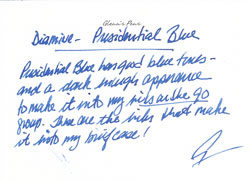 Diamine - Presidential Blue
Presidential Blue has good blue tones -
and a dark enough appearance
to make it into my inks on the go
group. These are the inks that make
it into my briefcase!